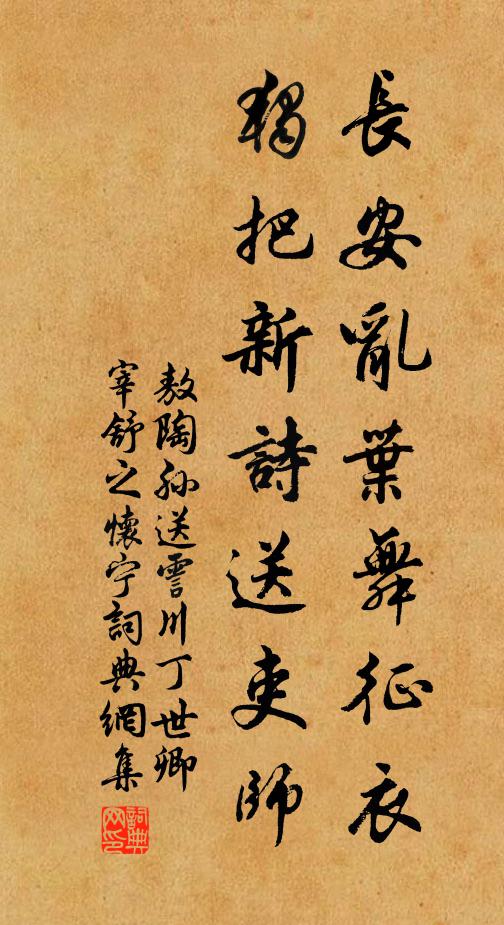 長安亂葉舞征衣
獨把新詩送吏師
敖陶孫送霅川丁世卿
宰舒之懷宁詞典網集
詞典网印